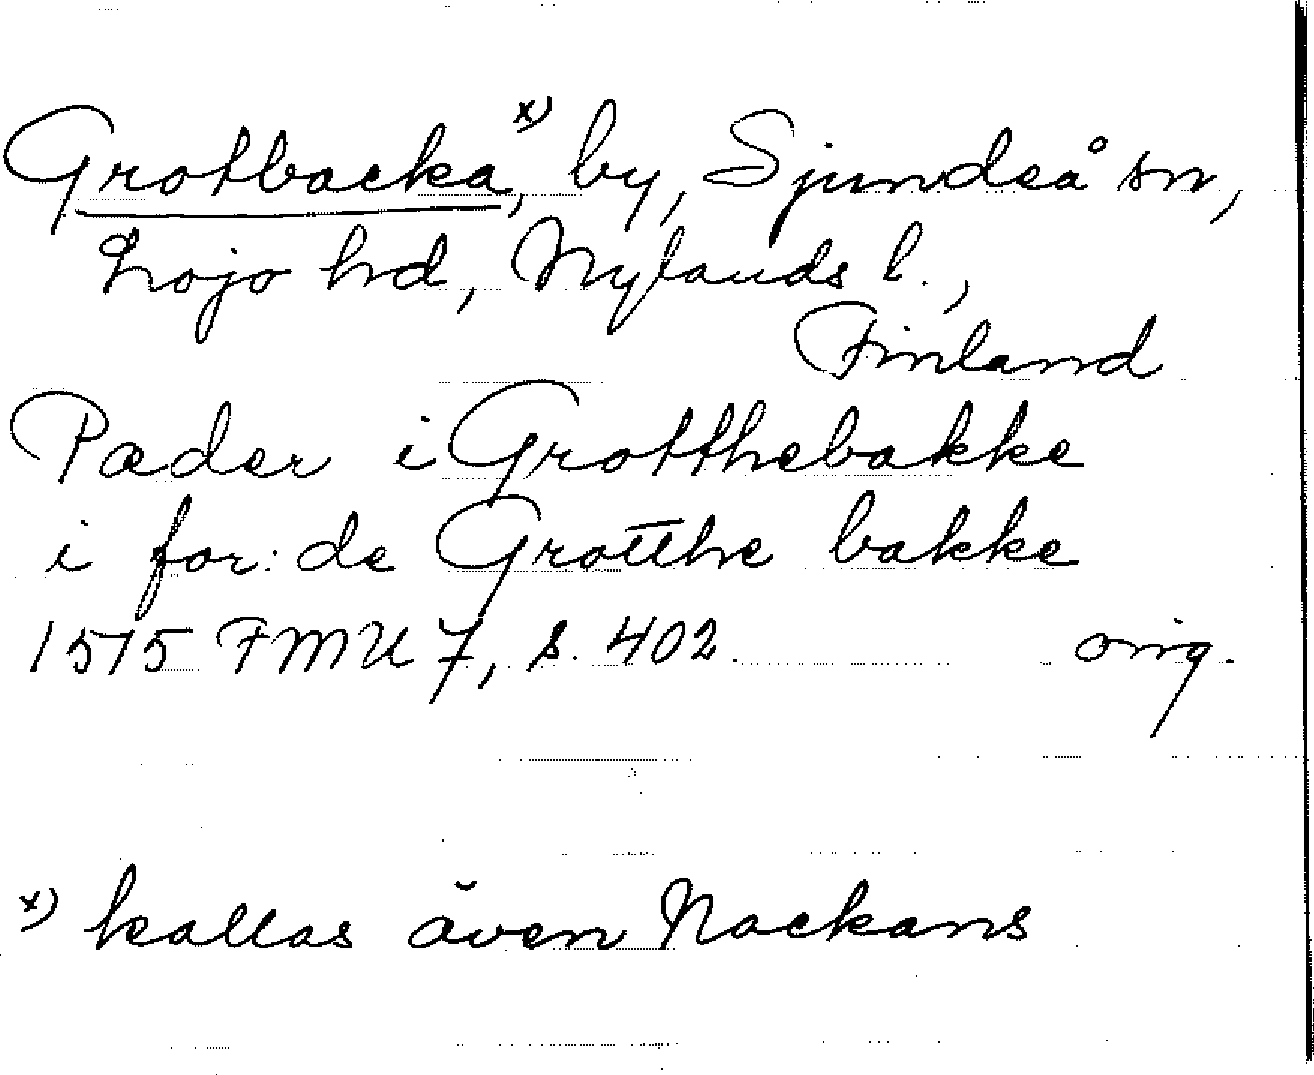 Grotbacka,ˣ⁾ by, Sjundeå sn,
Lojo hd, Nylands l.,
Finland
Pæder i Grotthebakke
i for: de Grotthe bakke
1575 FMU 7, s. 402. orig.
x) kallas även Nackans